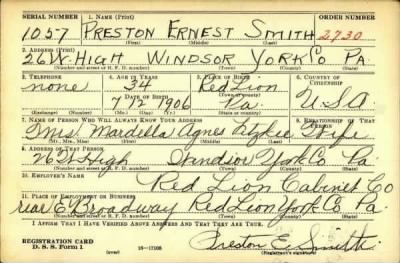 SERIAL NUMBER 1. NAME (Print) ORDER NUMBER
1057 PRESTON ERNEST SMITH 2730
(First) (Middle) (Last)
2. ADDRESS (Print)
26 W. HIGH WINDSOR YORK Co PA.
(Number and street or R. F. D. number) (Town) (County) (State)
3. TELEPHONE 4. AGE IN YEARS 5. PLACE OF BIRTH 6. COUNTRY OF CITIZENSHIP
none 34 Red Lion
DATE OF BIRTH (Town or county)
7 12 1906 Pa. U.S.A
(Mo.) (Day) (Yr.) (State or country)
7. NAME OF PERSON WHO WILL ALWAYS KNOW YOUR ADDRESS 8. RELATIONSHIP OF THAT PERSON
Mrs. Mardella Agnes Wife
(Mr., Mrs., Miss) (First) (Middle) (Last)
9. ADDRESS OF THAT PERSON
26 W. High Windsor York Co. Pa
(Number and street or R. F. D. number) (Town) (County) (State)
10. EMPLOYER'S NAME
Red Lion Cabinet Co
11. PLACE OF EMPLOYMENT OR BUSINESS
rear E. Broadway Red Lion York Co Pa.
(Number and street or R. F. D. number) (Town) (County) (State)
I AFFIRM THAT I HAVE VERIFIED ABOVE ANSWERS AND THAT THEY ARE TRUE.
REGISTRATION CARD
D. S. S. Form 1 16-17105 Preston E. Smith
(Registrant's signature)